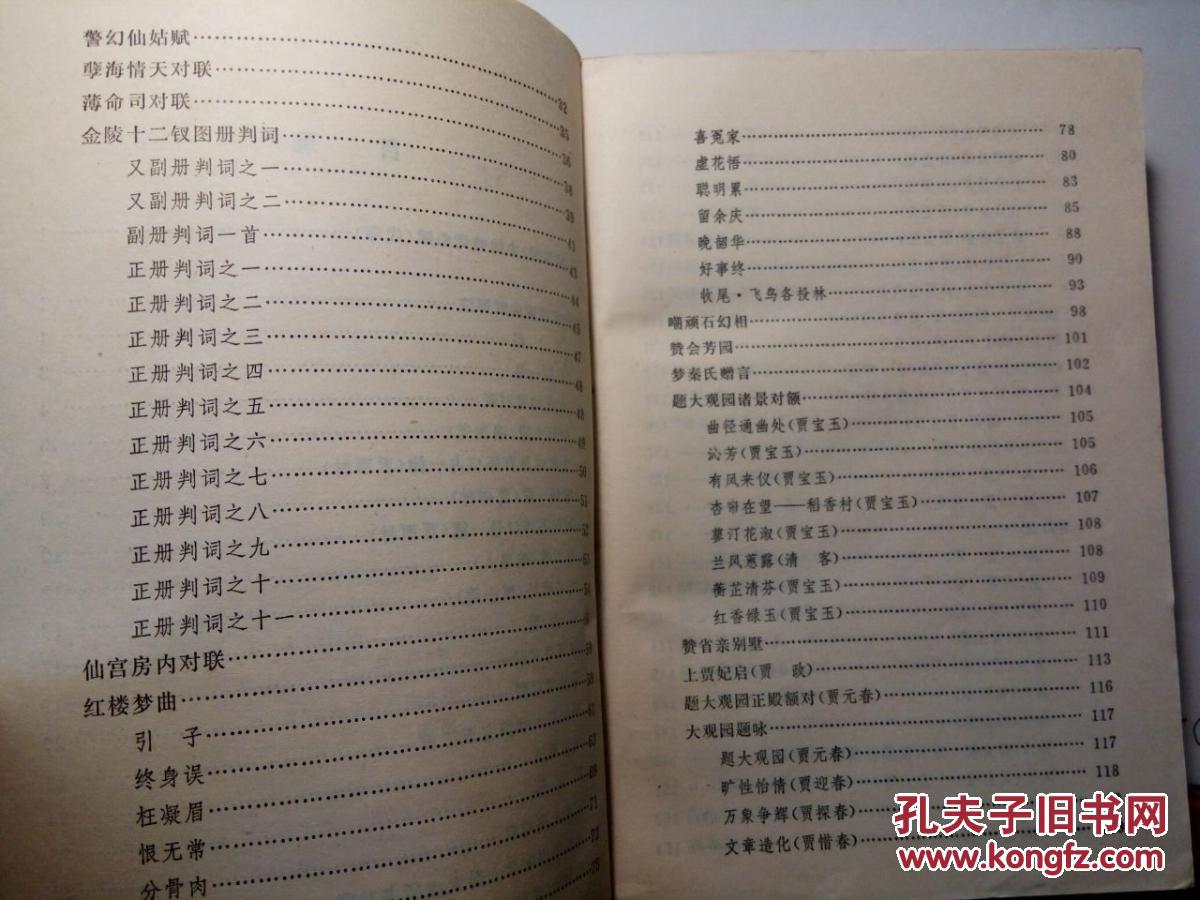 警幻仙姑赋
孽海情天对联 32
薄命司对联 35
金陵十二钗图册判词 36
又副册判词之一 38
又副册判词之二 39
副册判词一首 41
正册判词之一 43
正册判词之二 44
正册判词之三 45
正册判词之四 47
正册判词之五 48
正册判词之六 48
正册判词之七 49
正册判词之八 50
正册判词之九 51
正册判词之十 52
正册判词之十一 53
仙宫房内对联
红楼梦曲
引 子
终身误
枉凝眉
恨无常
分骨肉
喜冤家 78
虚花悟 80
聪明累 83
留余庆 85
晚韶华 88
好事终 90
收尾·飞鸟各投林 93
嘲顽石幻相 98
赞会芳园 101
梦秦氏赠言 102
题大观园诸景对额 104
曲径通幽处(贾宝玉) 105
沁芳(贾宝玉) 105
有凤来仪(贾宝玉) 106
杏帘在望——稻香村(贾宝玉) 107
蓼汀花溆(贾宝玉) 108
兰风蕙露(清 客) 108
蘅芷清芬(贾宝玉) 109
红香绿玉(贾宝玉) 110
赞省亲别墅 111
上贾妃启(贾 政) 113
题大观园正殿额对(贾元春) 116
大观园题咏 117
题大观园(贾元春) 117
旷性怡情(贾迎春) 118
万象争辉(贾探春)
文章造化(贾惜春)
孔夫子旧书网
www.kongfz.com